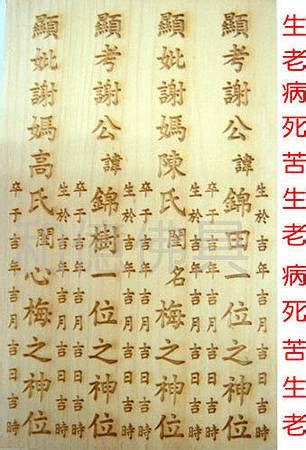 生老病死苦生老病死苦生老
生於吉年吉月吉日吉時
顯考謝公諱錦田一位之神位
卒于吉年吉月吉日吉時
生於吉年吉月吉日吉時
顯妣謝媽陳氏閨名梅之神位
卒于吉年吉月吉日吉時
生於吉年吉月吉日吉時
顯考謝公諱錦樹一位之神位
卒于吉年吉月吉日吉時
生於吉年吉月吉日吉時
顯妣謝媽高氏閨心梅之神位
卒于吉年吉月吉日吉時